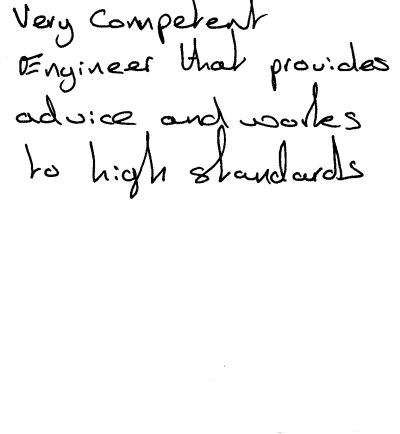 Very Competent
Engineer that provides
advice and works
to high standards